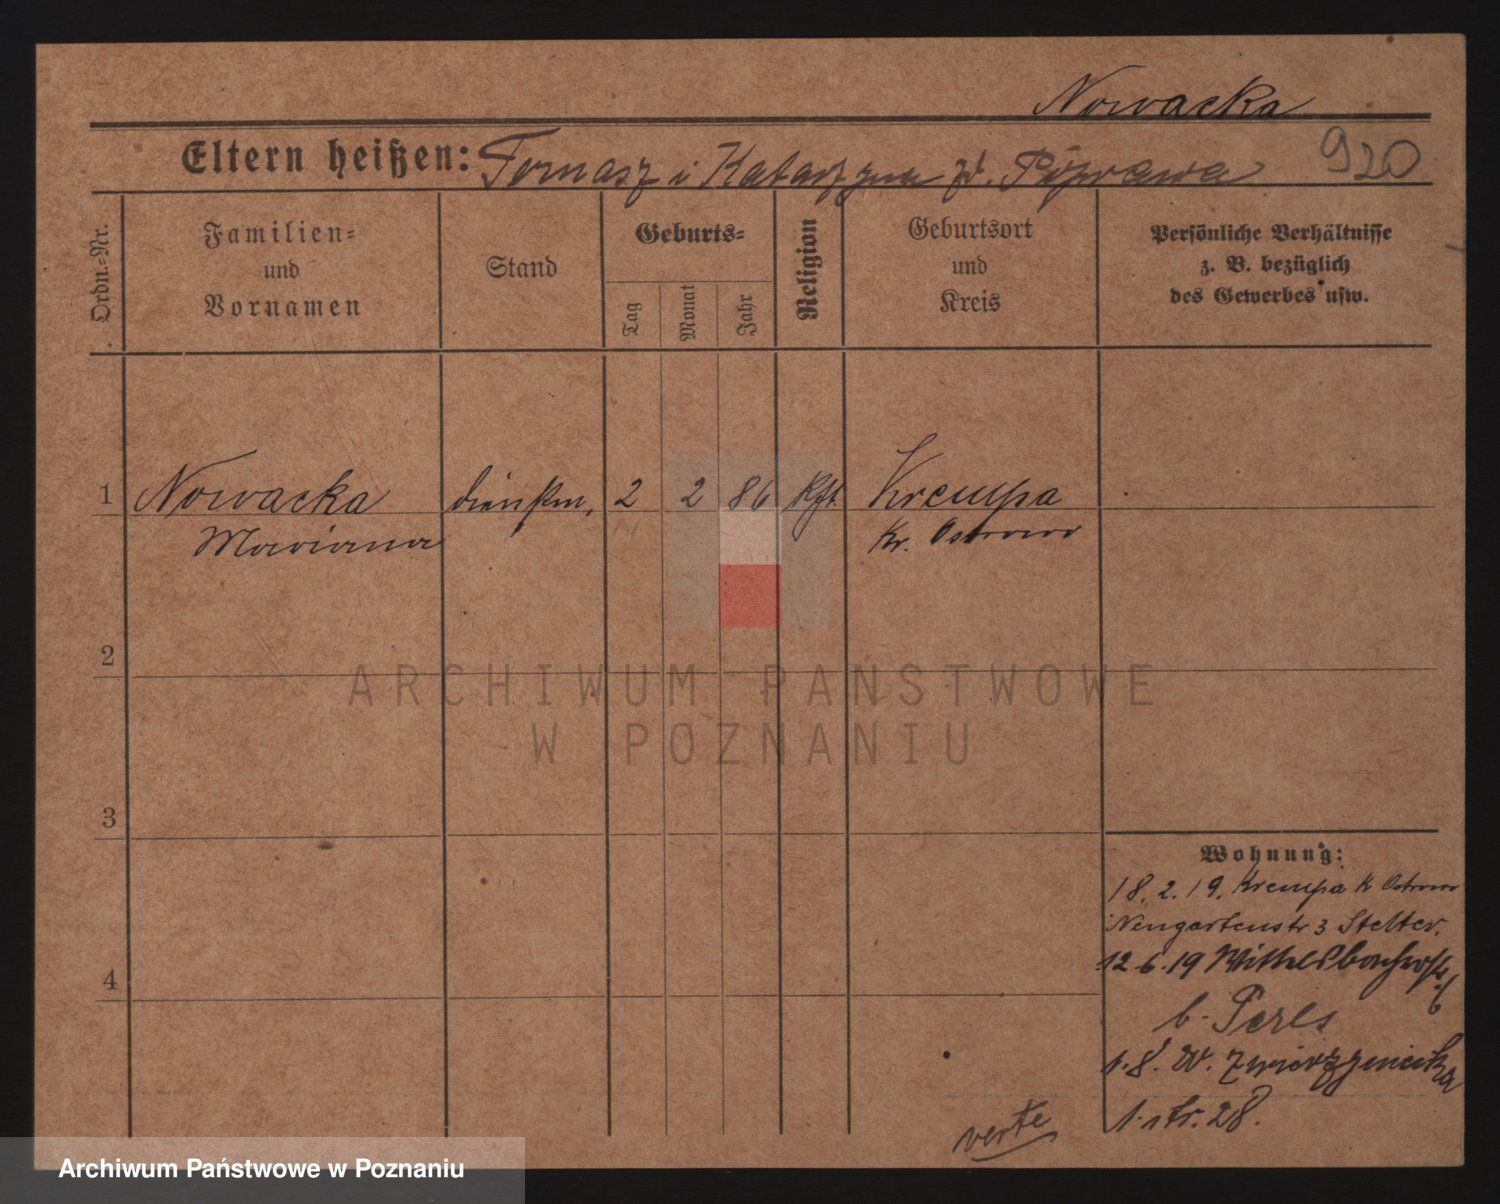 Nowacka
Eltern heißen: Tomasz i Katarzyna zd. Poprawa
920
Ordn.-Nr.
Familien-
und
Vornamen
Stand
Geburts-
Tag
Monat
Jahr
Religion
Geburtsort
und
Kreis
Persönliche Verhältnisse
z. B. bezüglich
des Gewerbes usw.
1 Nowacka dienstm. 2 2 86 kth. Krempa
Marianna Kr. Ostrowo
2
3
4
Wohnung:
18.2.19. Krempa Kr Ostrowo
Neugartenstr 3 Stelter.
12.6.19
b. Perls
1.8. W. Zwierzyniecka
str. 28.
verte
ARCHIWUM PAŃSTWOWE
W POZNANIU
Archiwum Państwowe w Poznaniu